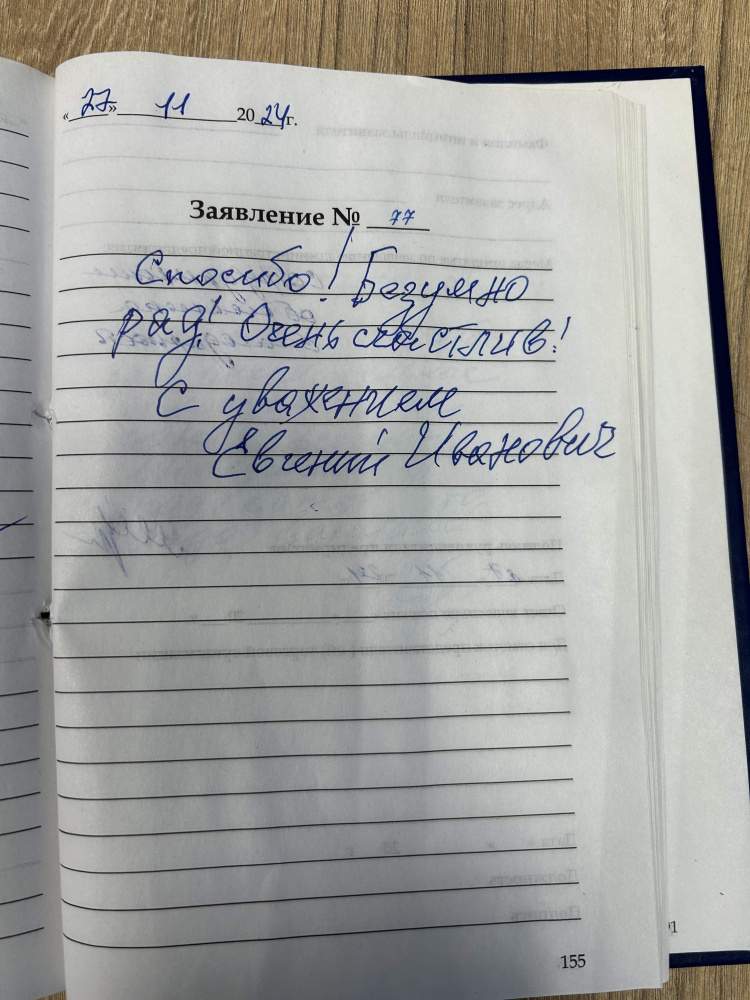 «27» 11 2024г.
Заявление № 77
Спасибо! Безумно
рад! Очень счастлив!
С уважением
Евгений Иванович
155